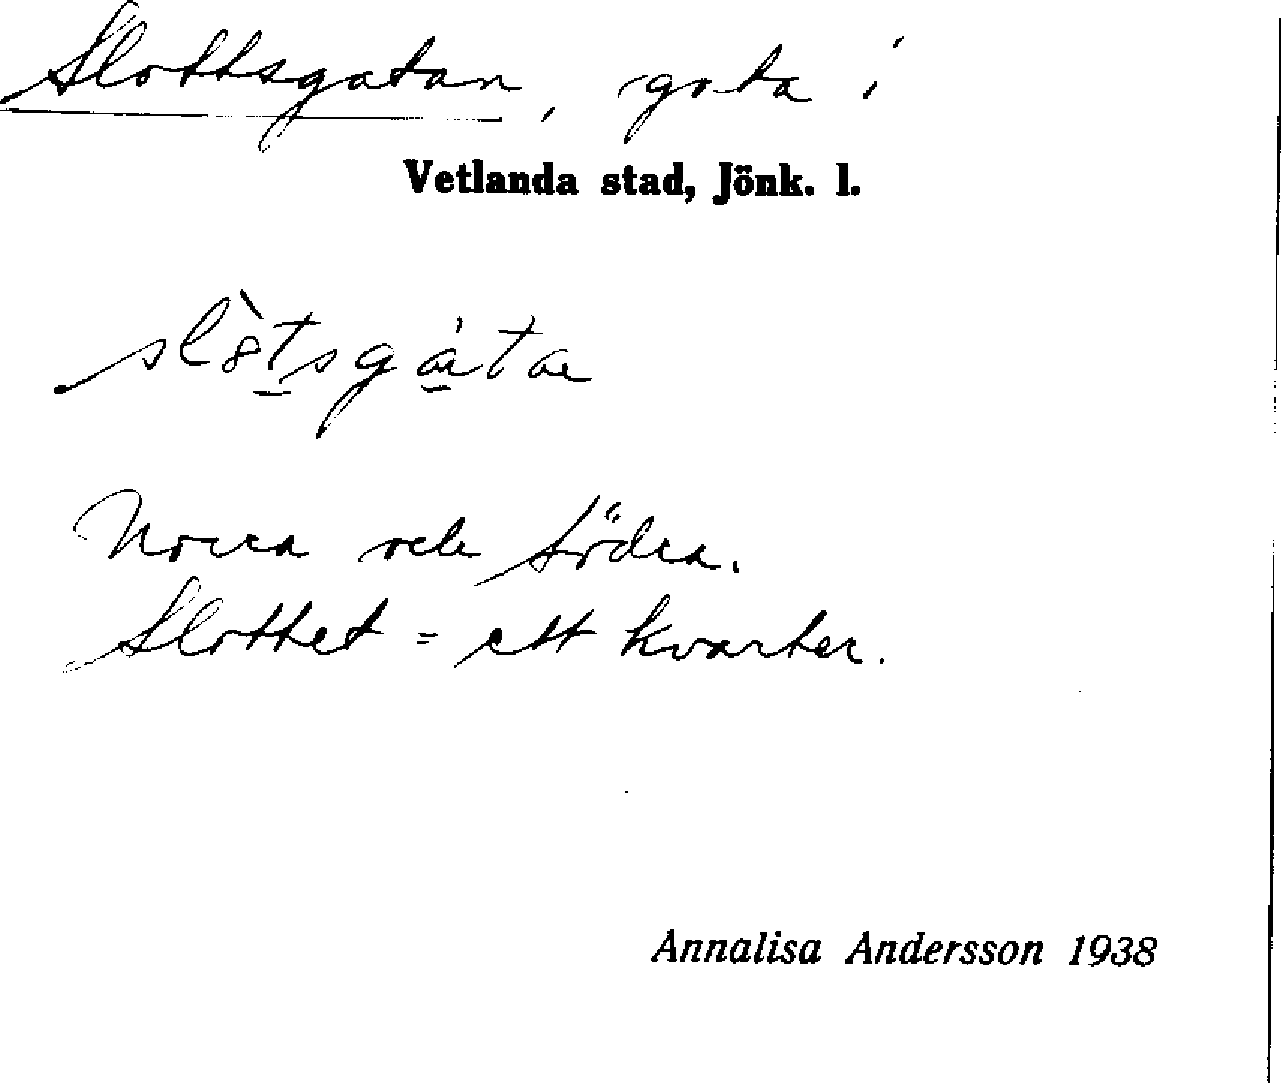 Slottsgatan, gata i
Vetlanda stad, Jönk. l.
slòtsgáta
Norra och södra.
Slottet = ett kvarter.
Annalisa Andersson 1938